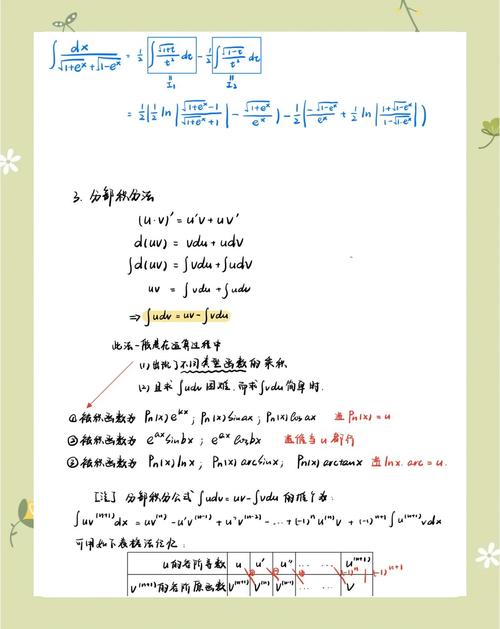 ∫ dx/(√(1+eˣ)+√(1-eˣ)) = ½ ∫ √(1+t)/t² dt - ½ ∫ √(1-t)/t² dt
॥ I₁ ॥ I₂
= ½(½ ln|(√(1+eˣ)-1)/(√(1+eˣ)+1)| - √(1+eˣ)/eˣ) - ½(-√(1-eˣ)/eˣ + ½ ln|(1+√(1-eˣ))/(1-√(1-eˣ))|)
3. 分部积分法
(u·v)' = u'v + uv'
d(uv) = vdu + udv
∫d(uv) = ∫vdu + ∫udv
uv = ∫vdu + ∫udv
⇒ ∫udv = uv - ∫vdu
此法一般是在运算过程中
(1) 出现了不同类型函数的乘积
(2) 且求∫udv 困难, 而求∫vdu 简单时.
① 被积函数为 Pn(x)eᵏˣ ; Pn(x)sinax ; Pn(x)cosax 选 Pn(x) = u
② 被积函数为 eᵃˣsinbx ; eᵃˣcosbx 选谁当u都行
③ 被积函数为 Pn(x)lnx ; Pn(x)arcsinx ; Pn(x)arctanx 选 lnx. arc = u.
[注] 分部积分公式 ∫udv = uv - ∫vdu 的推广为:
∫uv⁽ⁿ⁺¹⁾dx = uv⁽ⁿ⁾ - u'v⁽ⁿ⁻¹⁾ + u''v⁽ⁿ⁻²⁾ - ... + (-1)ⁿu⁽ⁿ⁾v + (-1)ⁿ⁺¹∫u⁽ⁿ⁺¹⁾vdx
可用如下表格法记忆:
u的各阶导数 u u' u'' ... u⁽ⁿ⁺¹⁾
⊕ ⊖ ⊕ (-1)ⁿ (-1)ⁿ⁺¹
v⁽ⁿ⁺¹⁾的各阶原函数 v⁽ⁿ⁺¹⁾ v⁽ⁿ⁾ v⁽ⁿ⁻¹⁾ ... v